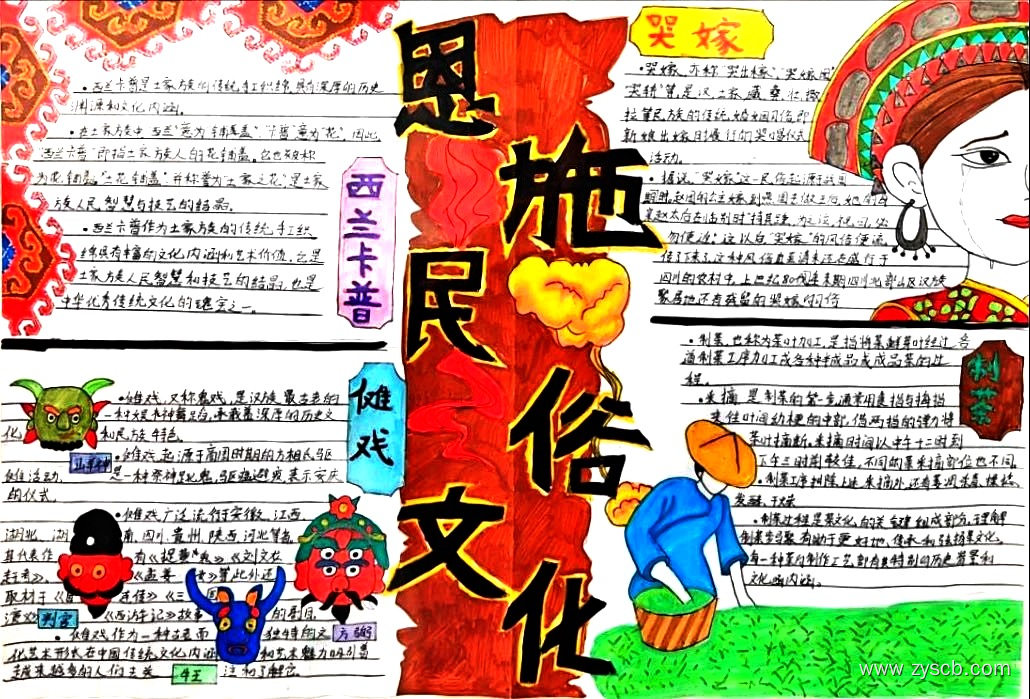 恩施
民俗
文化
西兰卡普
·西兰卡普是土家族的传统手工织锦,具有深厚的历史
渊源和文化内涵。
·在土家族中,西兰"意为"铺盖","卡普"意为"花",因此,
"西兰卡普"即指土家族人的花铺盖。它也被称
为花铺盖、"土花铺盖"并称誉为"土家之花"是土家
族人民智慧与技艺的结晶。
·西兰卡普作为土家族的传统手工织
锦具有丰富的文化内涵和艺术价值,它是
土家族人民智慧和技艺的结晶,也是
中华优秀传统文化的瑰宝之一。
傩戏
·傩戏,又称鬼戏,是汉族最古老的
一种娱神舞蹈,承载着深厚的历史文
化 和民族特色。
·傩戏起源于商周时期的方相氏驱
傩活动,是一种祭神跳鬼、驱瘟避疫、表示安庆
的仪式。
·傩戏广泛流行于安徽、江西、
湖北、湖 南、四川、贵州、陕西、河北等省,
其代表作 有《捉黄鬼》《刘文龙
赶考》、《孟姜 女》等,此外还
取材于《 《三
演义》《西游记》故事 的剧目。
·傩戏作为一种古老而 独特的文
化艺术形式在中国传统文化内涵和艺术魅力吸引着
越来越多的人们去关 注和了解它。
判官
牛王
哭嫁
·哭嫁,亦称"哭出嫁"、"哭嫁囡"
"哭轿"等,是汉、土家、藏、彝、壮、撒
拉等民族的传统婚姻习俗,即
新娘出嫁时履行的哭唱仪式
活动。
·据说"哭嫁"这一民俗起源于战国
时期,赵国的公主嫁到燕国去做王后,她的母
亲赵太后在临别时"持其踵,为之泣,祝曰,必
勿使返。"这以后"哭嫁"的风俗便流
传了下来,这种风俗直至清末还在盛行于
四川的农村中,上世纪80代年末期四川北部山区汉族
聚居地还有残留的哭嫁风俗
制茶
·制茶,也称为茶叶加工,是指将茶鲜草叶经过各
道制茶工序加工成各种半成品或成品茶的过
程。
·采摘是制茶的第一步,通常用食指与拇指
夹住叶间幼梗的中部,借两指的弹力将
茶叶摘断。采摘时间以中午十二时到
下午三时前较佳,不同的茶采摘部位也不同,
·制茶工序排除上述采摘外,还有萎凋、杀青、揉捻、
发酵、干燥
·制茶过程是茶文化的关键组成部分,理解
制茶步骤有助于更好地传承和弘扬茶文化。
每一种茶的制作工艺都有其特别的历史背景和
文化的内涵。
www.zyscb.com